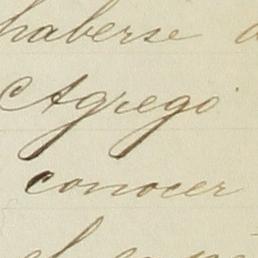 haberse
Agregó
conocer
el